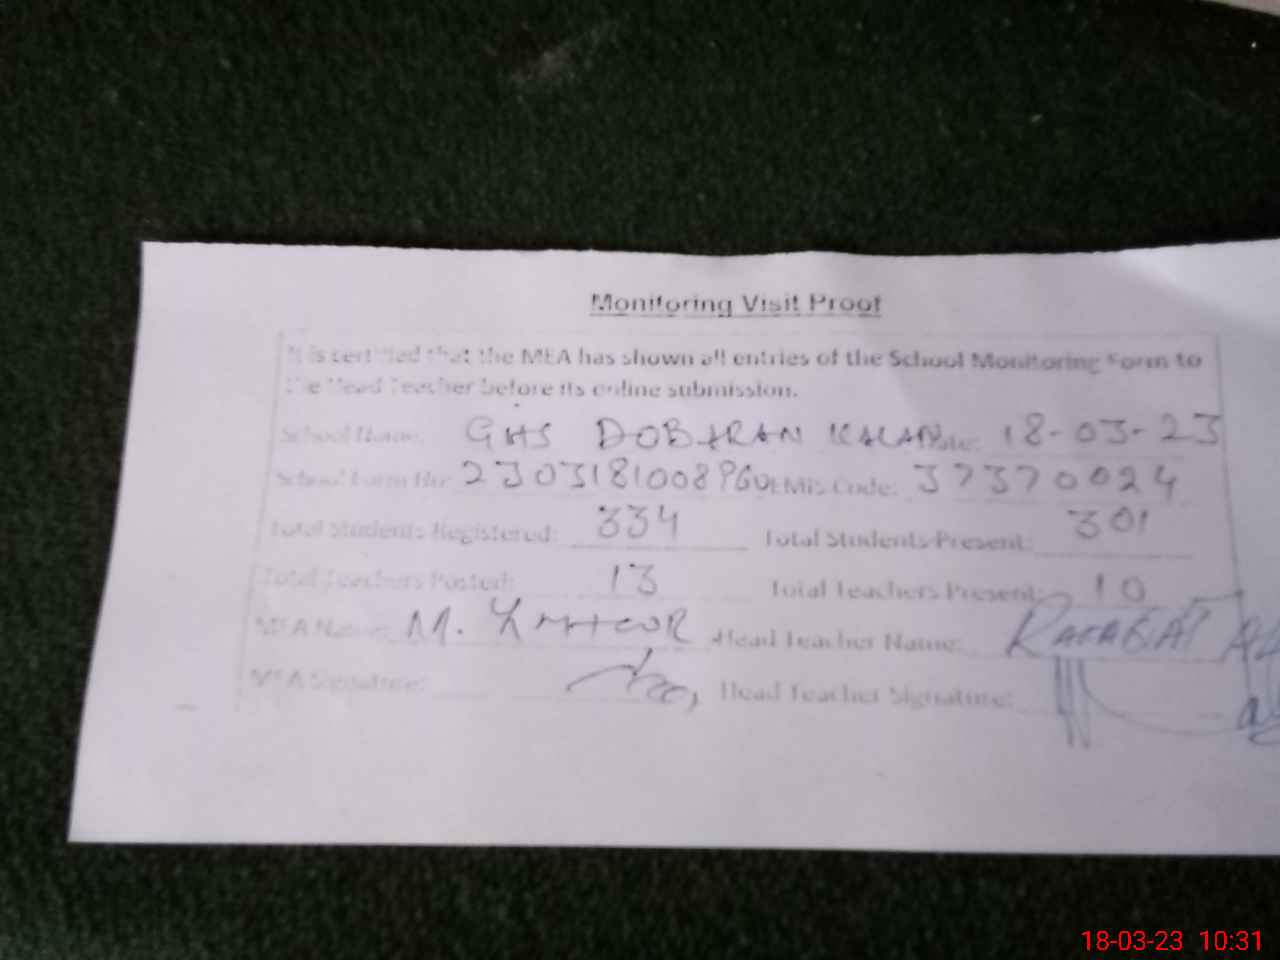 Monitoring Visit Proof
It is certified that the MEA has shown all entries of the School Monitoring Form to
the Head Teacher before its online submission.
School Name: GHS DOBARAN KALAN Date: 18-03-23
School Form No: EMIS Code: 37370024
Total Students Registered: 334 Total Students Present: 301
Total Teachers Posted: 13 Total Teachers Present: 10
MEA Name: M. Head Teacher Name:
MEA Signature: Head Teacher Signature:
18-03-23 10:31